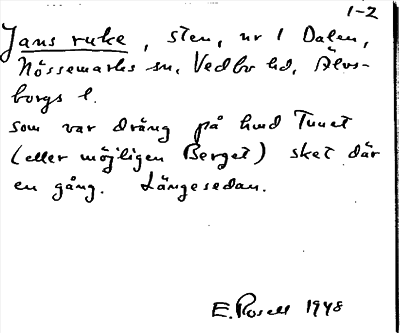 1-2
Jans ruke, sten, nr 1 Dalen,
Nössemarks sn, Vedbo hd, Älvs-
borgs l.
som var dräng på hmd Tunet
(eller möjligen Berget) sket där
en gång. Längesedan.
E. Rosell 1948